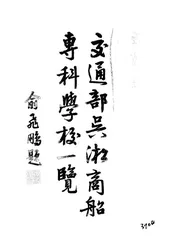 交通部吳淞商船
專科學校一覽
俞飛鵬題